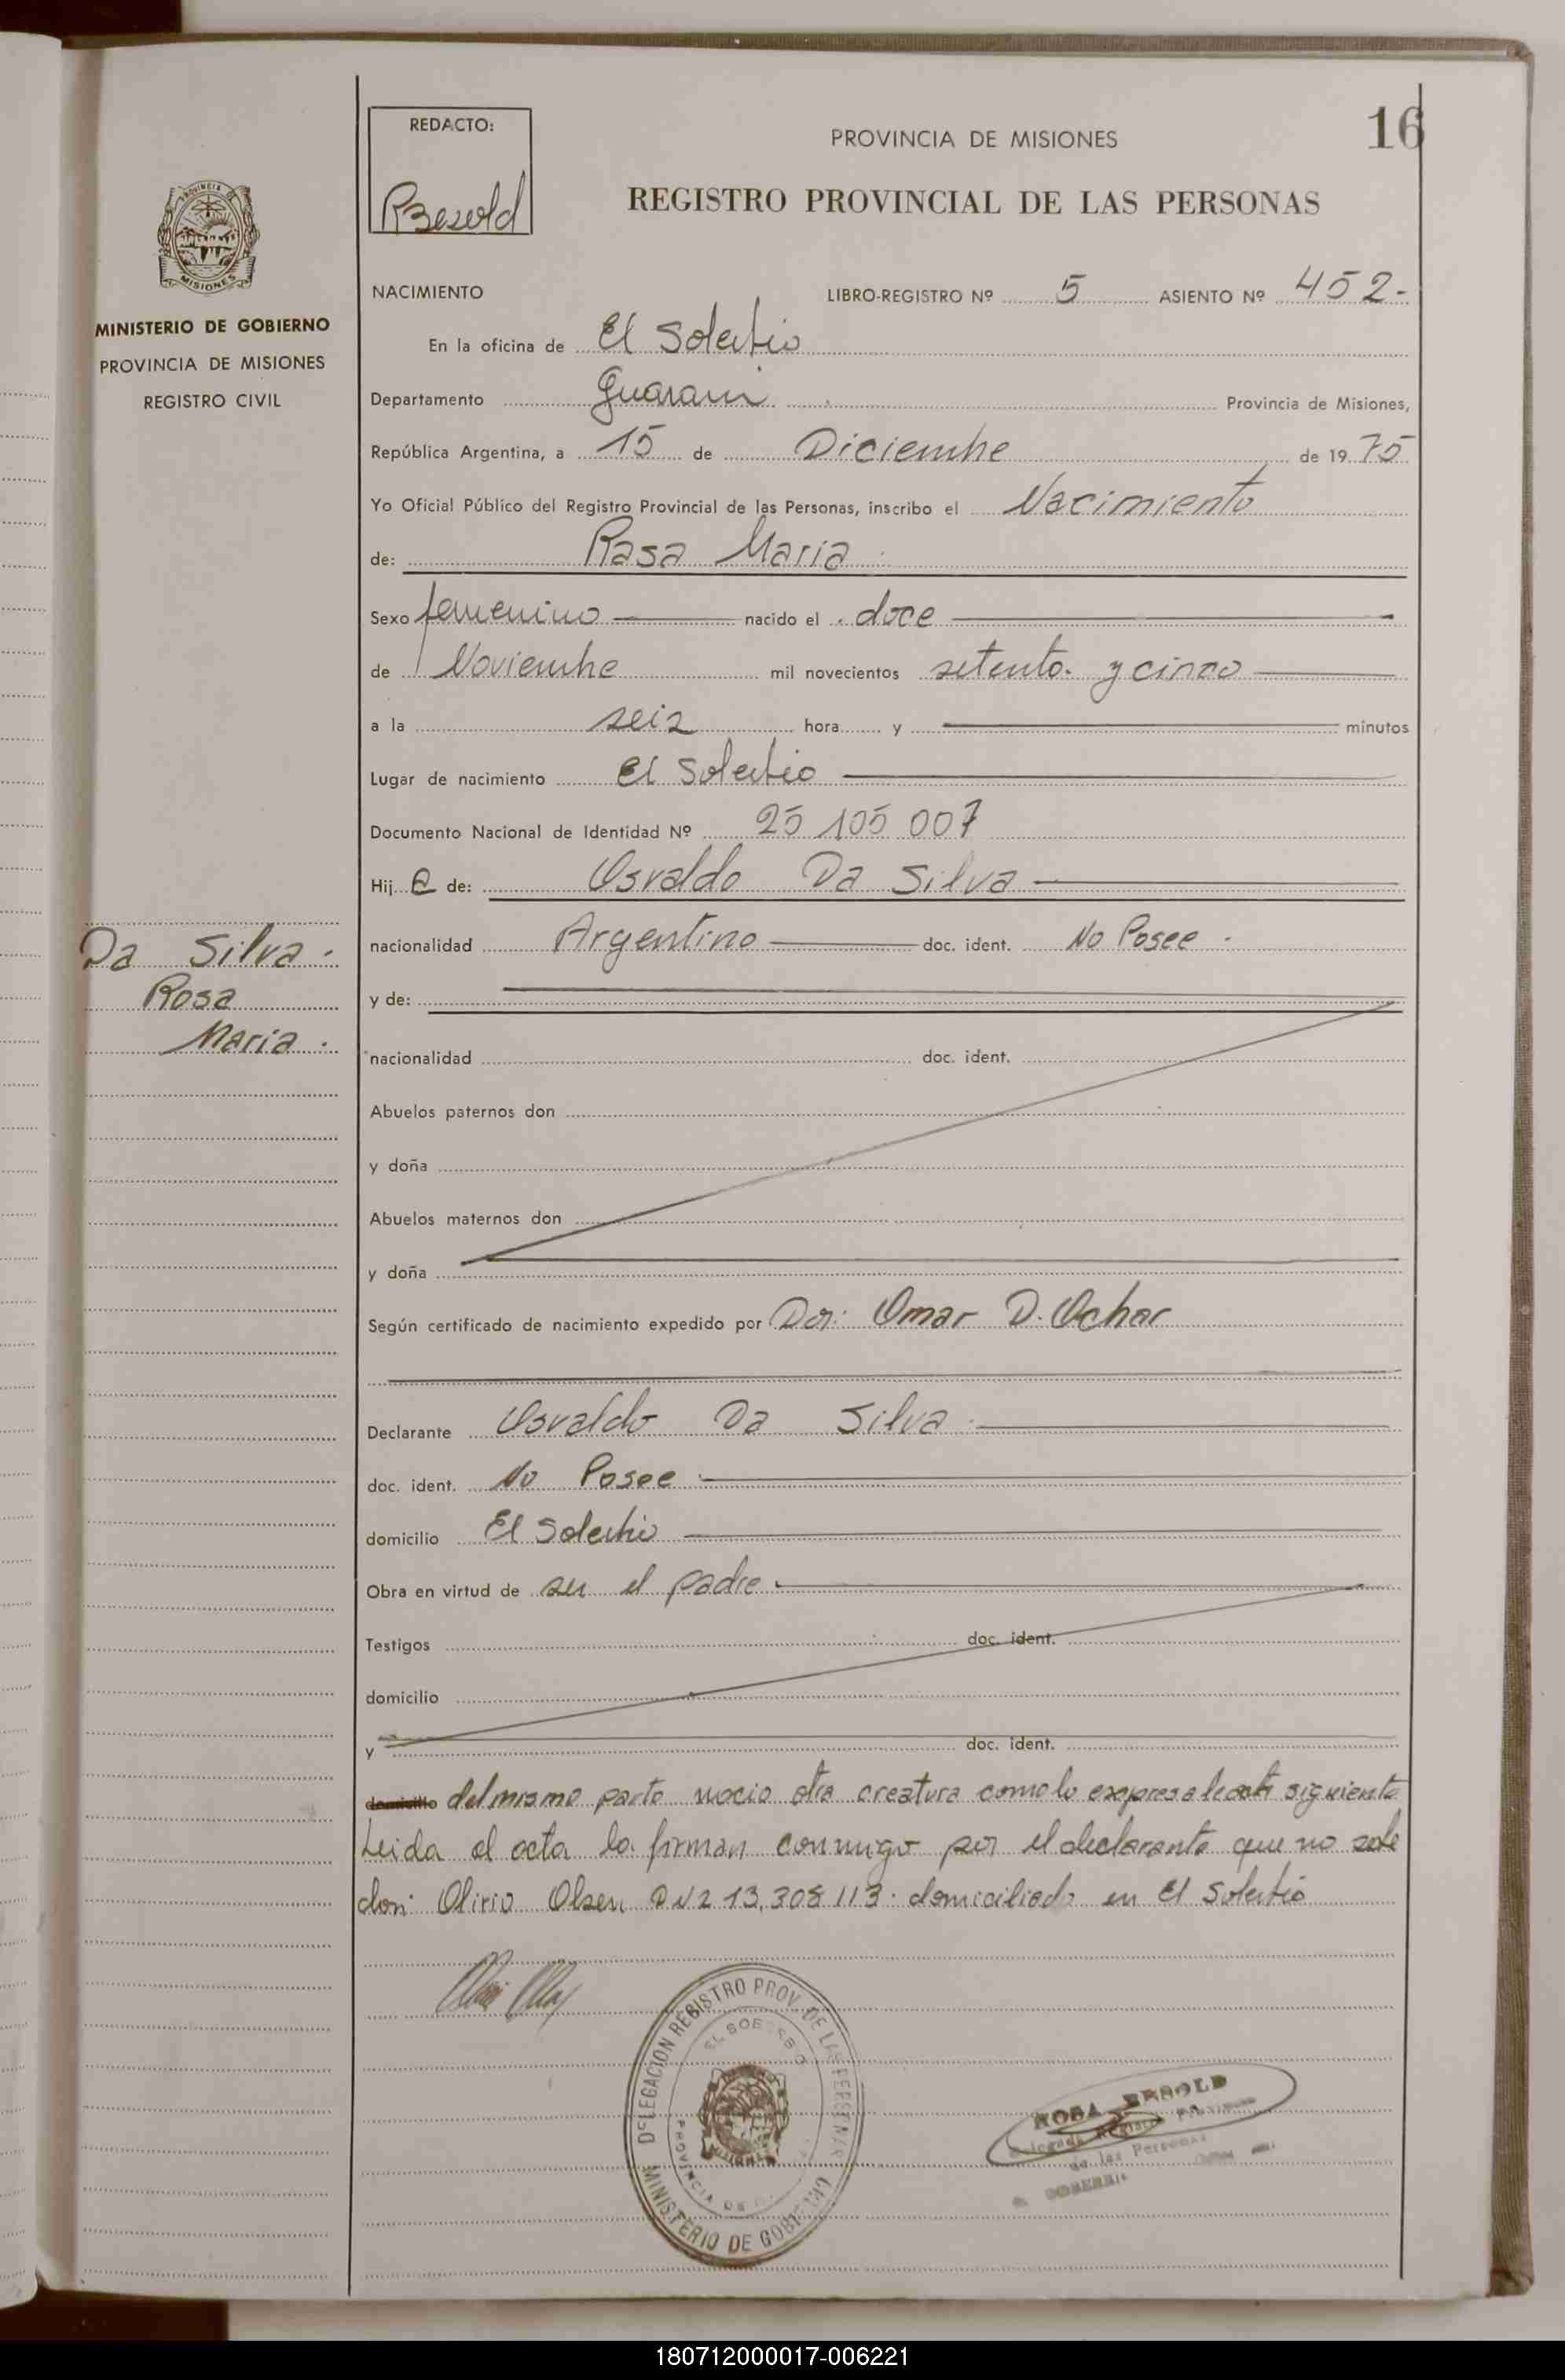 16
REDACTO:
RBesold
PROVINCIA DE MISIONES
REGISTRO PROVINCIAL DE LAS PERSONAS
PROVINCIA
MISIONES
MINISTERIO DE GOBIERNO
PROVINCIA DE MISIONES
REGISTRO CIVIL
NACIMIENTO LIBRO-REGISTRO Nº 5 ASIENTO Nº 452-
En la oficina de El Soberbio
Departamento Guarani Provincia de Misiones,
República Argentina, a 15 de Diciembre de 1975
Yo Oficial Público del Registro Provincial de las Personas, inscribo el Nacimiento
de: Rosa Maria
Sexo femenino nacido el doce
de Noviembre mil novecientos setenta y cinco
a la seis hora y minutos
Lugar de nacimiento El Soberbio
Documento Nacional de Identidad Nº 25 105 007
Hij a de: Osvaldo Da Silva
nacionalidad Argentino doc. ident. No Posee.
y de:
Da Silva.
Rosa
Maria.
nacionalidad doc. ident.
Abuelos paternos don
y doña
Abuelos maternos don
y doña
Según certificado de nacimiento expedido por Dor: Omar D. Ochar
Declarante Osvaldo Da Silva.
doc. ident. No Posee
domicilio El Soberbio
Obra en virtud de ser el padre.
Testigos doc. ident.
domicilio
y doc. ident.
domicilio del mismo parto nocio otra creatura como lo expresa el acta siguiente
Leida el acta la firman conmigo por el declarante que no sabe
don: Olirio Olsen DNI 13,308 113. domiciliado en El Soberbio
DELEGACION REGISTRO PROV. DE LAS PERSONAS
EL SOBERBIO
PROVINCIA DE
MINISTERIO DE GOBIERNO
ROSA BESOLD
Delegada Registro Provincial
de las Personas
EL SOBERBIO
180712000017-006221